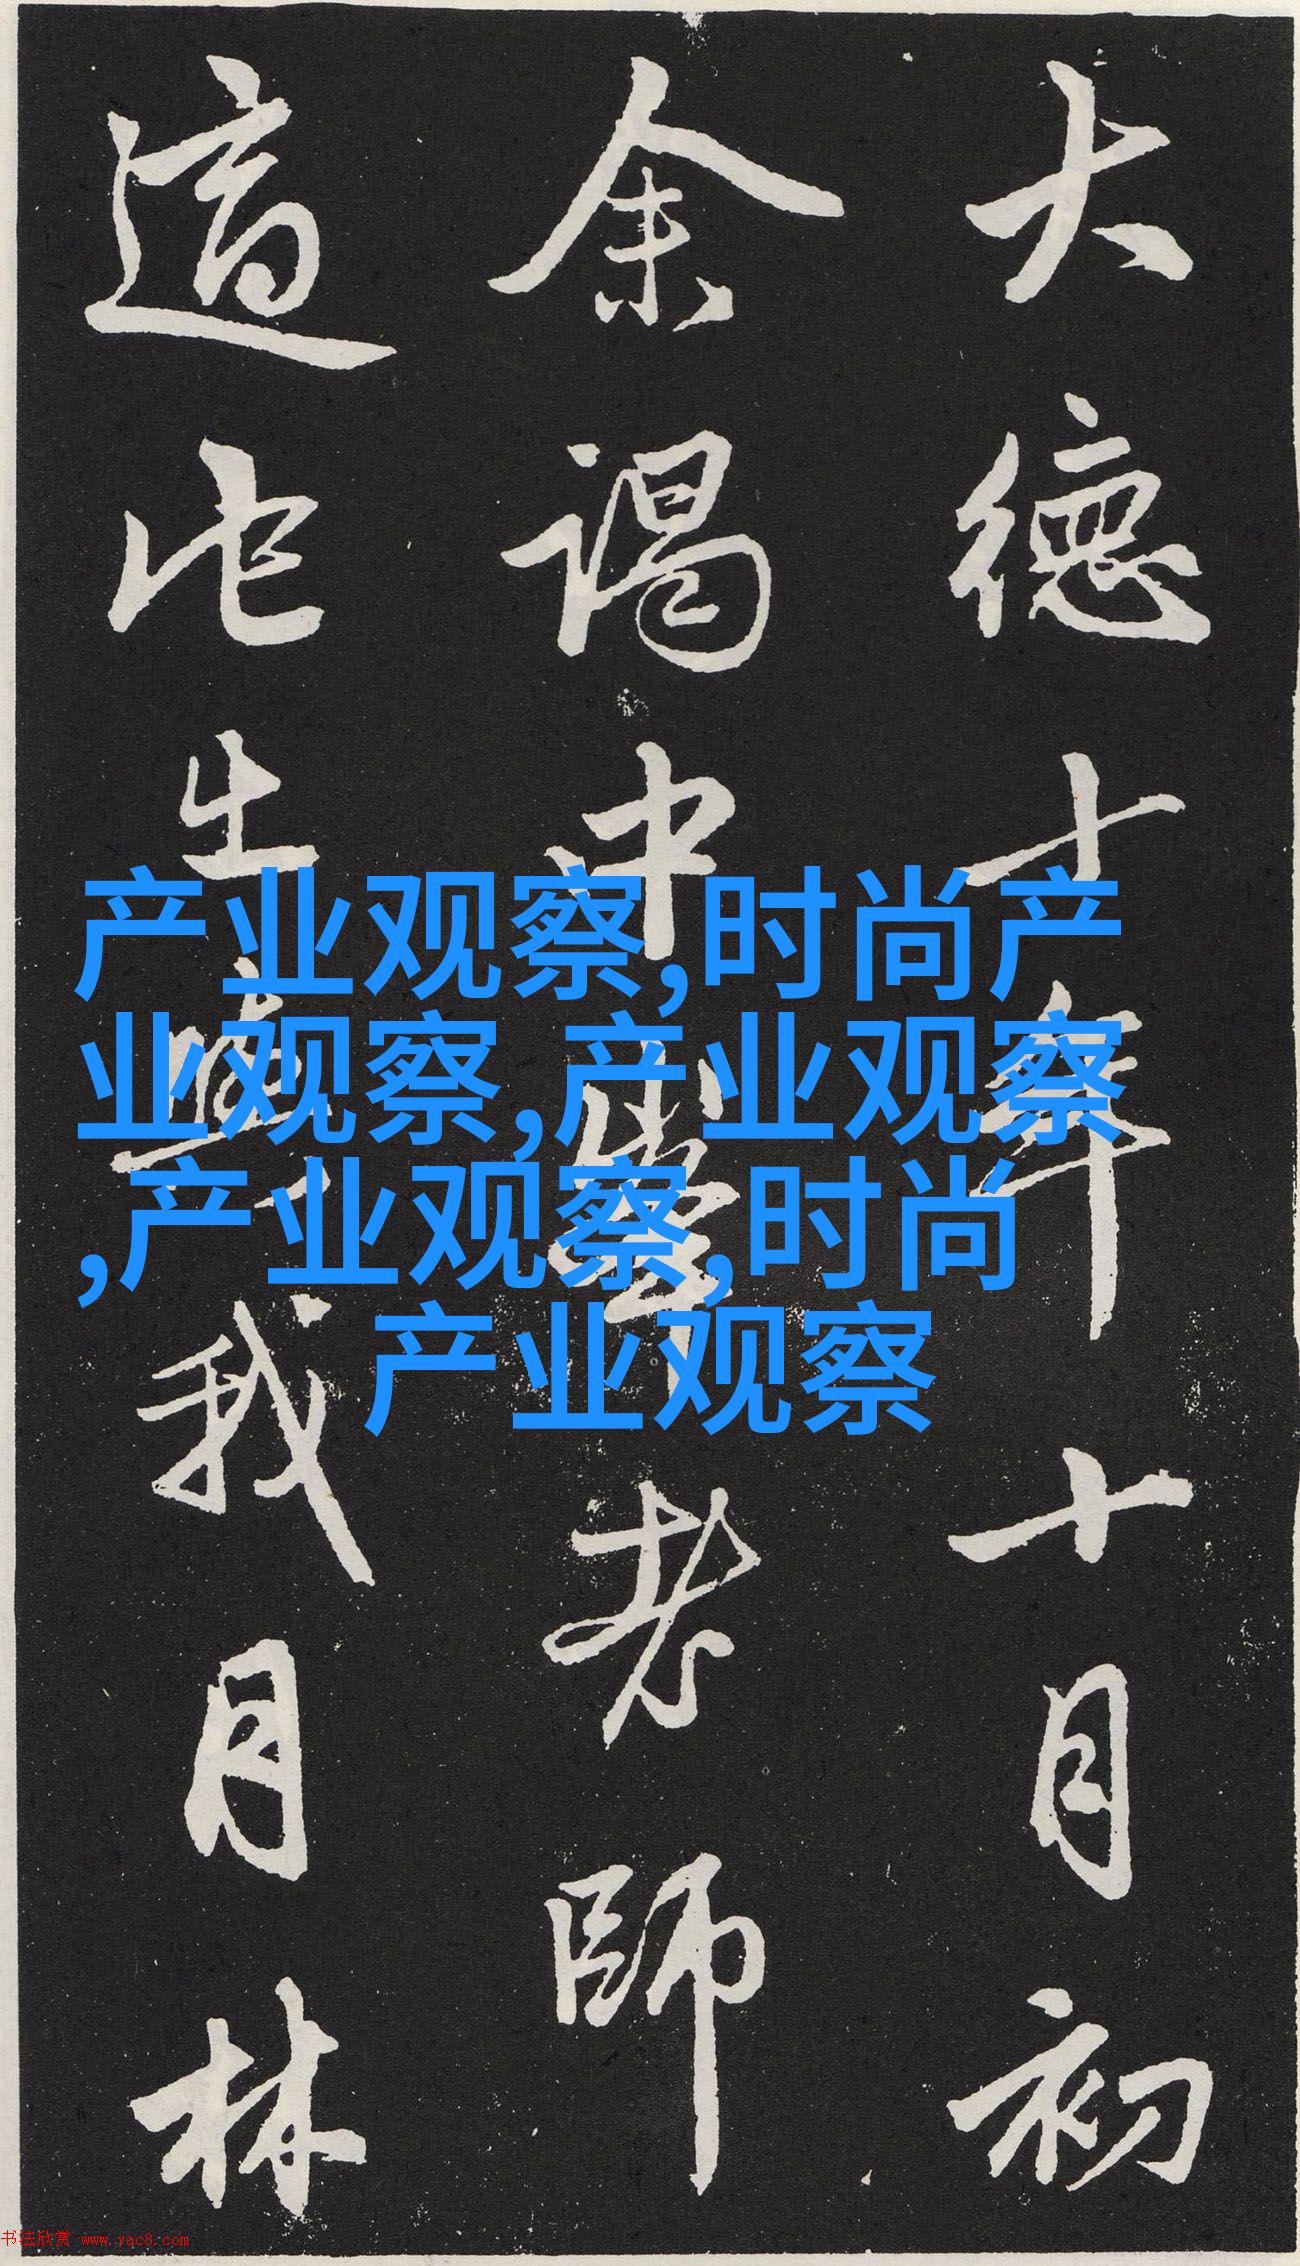 大德十年十月初
余谒中峯老師
適此生與我月林
产业观察,时尚产
业观察,产业观察
,产业观察,时尚
产业观察
书法欣赏 www.yac8.com